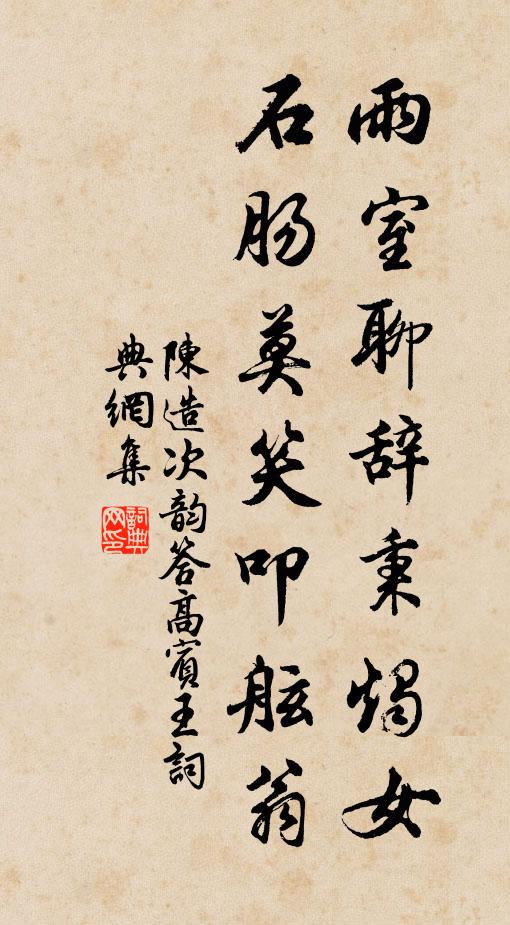 雨室聊辞秉燭女
石肠莫笑叩舷翁
陳造次韵答高賓王詞
典網集
詞典网印